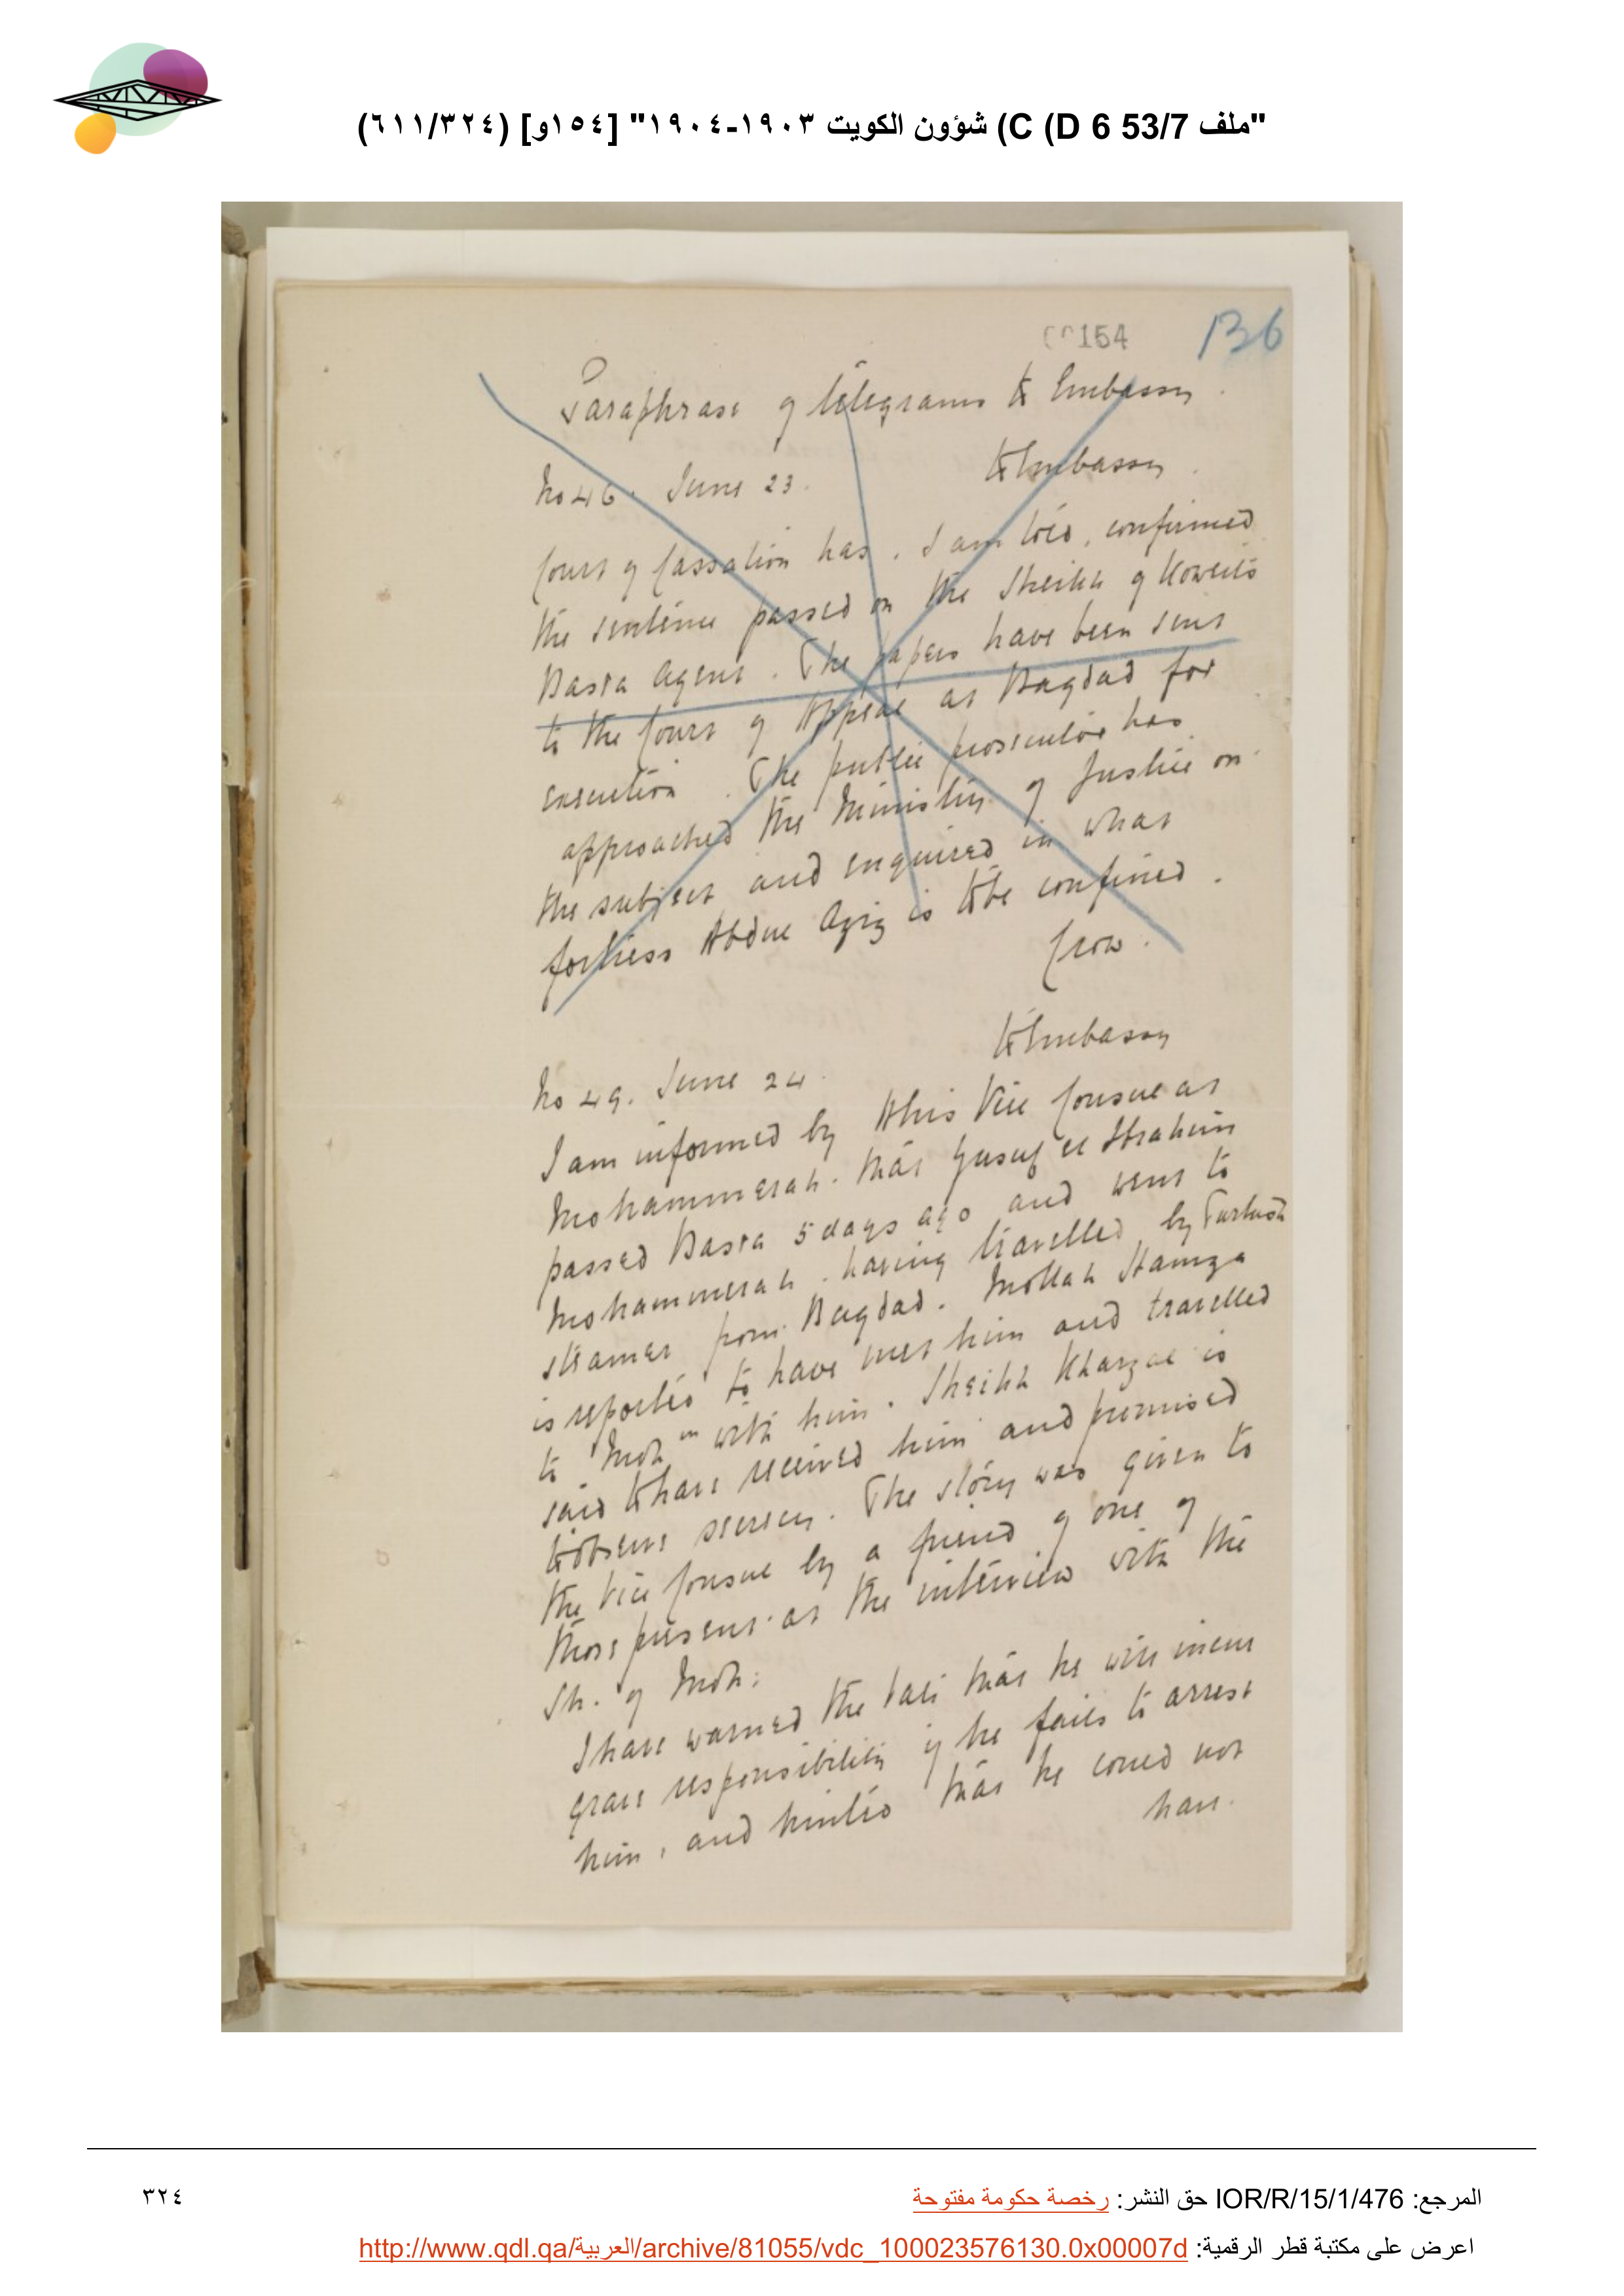 "ملف 53/7 C (D 6) شؤون الكويت ١٩٠٣-١٩٠٤" [١٥٤و] (٦١١/٣٢٤)
154
136
Paraphrase of telegrams to Embassy.
No 46. June 23. To Embassy.
Court of Cassation has, I am told, confirmed
the sentence passed on the Sheikh of Koweit's
Basra Agent. The papers have been sent
to the Court of Appeal at Bagdad for
execution. The public prosecutor has
approached the Ministry of Justice on
the subject and enquired in what
fortress Abdul Aziz is to be confined.
Crow.
To Embassy
No 49. June 24.
I am informed by this Vice Consul at
Mohammerah that Yusuf el Ibrahim
passed Basra 5 days ago and went to
Mohammerah, having travelled by Turkish
steamer from Bagdad. Mollah Hamza
is reported to have met him and travelled
to Moh with him. Sheikh Khazal is
said to have received him and promised
to observe secrecy. The story was given to
the Vice Consul by a friend of one of
those present at the interview with the
Sh. of Moh:
I have warned the Vali that he will incur
grave responsibility if he fails to arrest
him, and hinted that he could not
have.
المرجع: IOR/R/15/1/476 حق النشر: رخصة حكومة مفتوحة
٣٢٤
اعرض على مكتبة قطر الرقمية: http://www.qdl.qa/العربية/archive/81055/vdc_100023576130.0x00007d